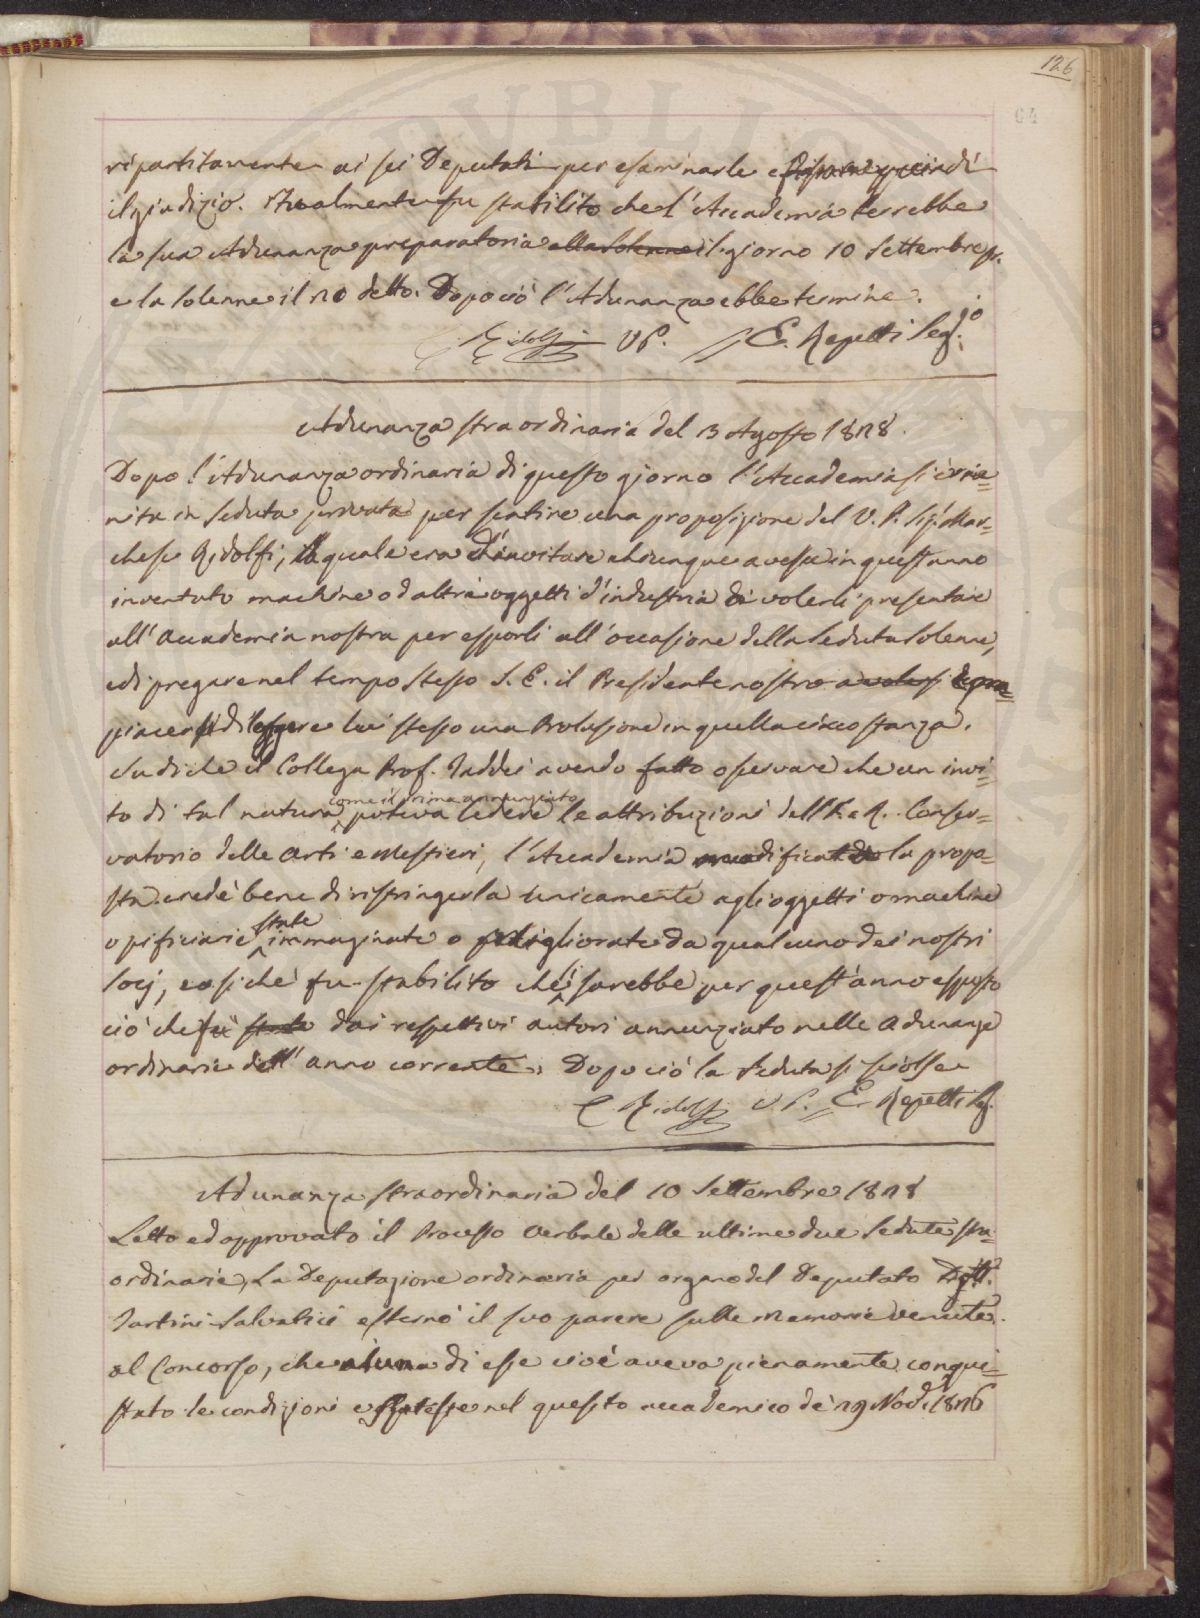 126
64
ripartitamente ai sei Deputati per esaminarle e quindi
il giudizio. Finalmente fu stabilito che l'Accademia terrebbe
la sua Adunanza preparatoria alla solenne il giorno 10 Settembre pr.
e la solenne il 20 detto. Dopo ciò l'Adunanza ebbe termine.
C. Ridolfi VP. E. Repetti Seg.io
Adunanza straordinaria del 3 Agosto 1828.
Dopo l'Adunanza ordinaria di questo giorno l'Accademia si è riu=
nita in Seduta privata per sentire una proposizione del V. P. Sig. Mar=
chese Ridolfi, la quale era d'invitare chiunque avesse in quest'anno
inventato machine od altri oggetti d'industria di volerli presentare
all'Accademia nostra per esporli all'occasione della Seduta Solenne,
e di pregare nel tempo stesso S. E. il Presidente nostro a volersi com=
piacere di leggere lui stesso una Prolusione in quella circostanza.
Su di che il Collega Prof. Taddei avendo fatto osservare che un invi=
come il prima annunziato
to di tal natura poteva ledere le attribuzioni dell'I. e R. Conser=
vatorio delle Arti e Mestieri, l'Accademia modificando la propo=
sta credè bene di ristringerla unicamente agli oggetti o machine
state
opificiarie immaginate o migliorate da qualcuno dei nostri
Socj, cosichè fu stabilito che si sarebbe per quest'anno esposto
ciò che fu stato dai respettivi autori annunziato nelle adunanze
ordinarie dell'anno corrente. Dopo ciò la Seduta si sciolse
C. Ridolfi VP. E. Repetti Sg.
Adunanza straordinaria del 10 Settembre 1828
Letto ed approvato il Processo Verbale delle ultime due Sedute stra=
ordinarie, La Deputazione ordinaria per organo del Deputato Dott.
Tartini-Salvatici esternò il suo parere sulle Memorie venute
al Concorso, che niuna di esse cioè aveva pienamente conqui=
stato le condizioni espresse nel quesito accademico de' 29 Nov. 1826